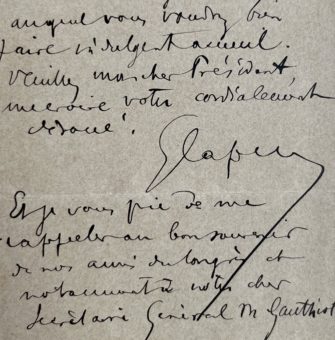 auquel vous voudrez bien
faire indulgent accueil.
Veuillez, mon cher Président,
me croire votre cordialement
dévoué.
Et je vous prie de me
rappeler au bon souvenir
de nos amis du Congrès et
notamment à notre cher
Secrétaire Général M Gauthiot